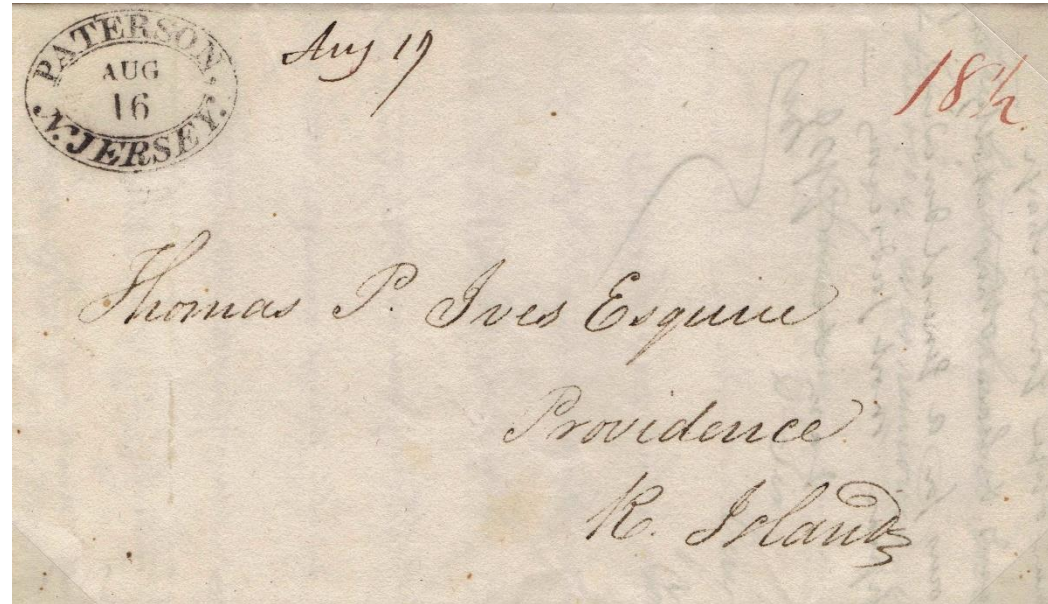 PATERSON,
AUG
16
N. JERSEY.
Aug 17
18½
Thomas P. Ives Esquire
Providence
R. Island